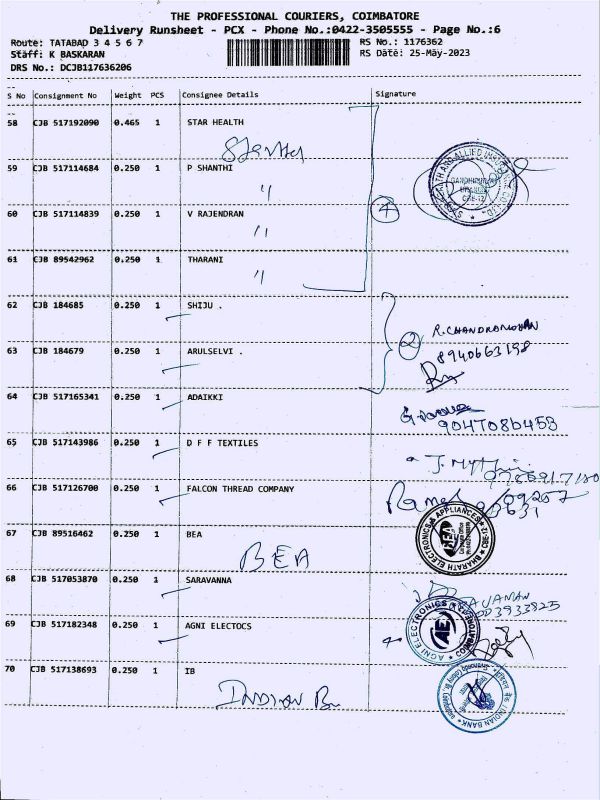 THE PROFESSIONAL COURIERS, COIMBATORE
Delivery Runsheet - PCX - Phone No.:0422-3505555 - Page No.:6
Route: TATABAD 3 4 5 6 7 RS No.: 1176362
Staff: K BASKARAN RS Date: 25-May-2023
DRS No.: DCJB117636206
S No Consignment No Weight PCS Consignee Details Signature
58 CJB 517192090 0.465 1 STAR HEALTH
59 CJB 517114684 0.250 1 P SHANTHI
"
60 CJB 517114839 0.250 1 V RAJENDRAN
4
"
61 CJB 89542962 0.250 1 THARANI
"
62 CJB 184685 0.250 1 SHIJU .
2 R.CHANDRAMOHAN
8940663198
63 CJB 184679 0.250 1 ARULSELVI .
64 CJB 517165341 0.250 1 ADAIKKI
65 CJB 517143986 0.250 1 D F F TEXTILES
66 CJB 517126700 0.250 1 FALCON THREAD COMPANY
67 CJB 89516462 0.250 1 BEA
BEA
BHARATH ELECTRONICS & APPLIANCES CBE-12
68 CJB 517053870 0.250 1 SARAVANNA
69 CJB 517182348 0.250 1 AGNI ELECTOCS
AGNI ELECTRONICS COIMBATORE
AE
70 CJB 517138693 0.250 1 IB
INDIAN